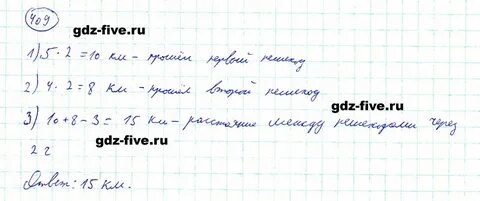 409
gdz-five.ru
1) 5 · 2 = 10 км - прошёл первый пешеход
gdz-five.ru
2) 4 · 2 = 8 км - прошёл второй пешеход
gdz-five.ru
3) 10 + 8 - 3 = 15 км - расстояние между пешеходами через
gdz-five.ru
2 г
Ответ: 15 км.
gdz-five.ru